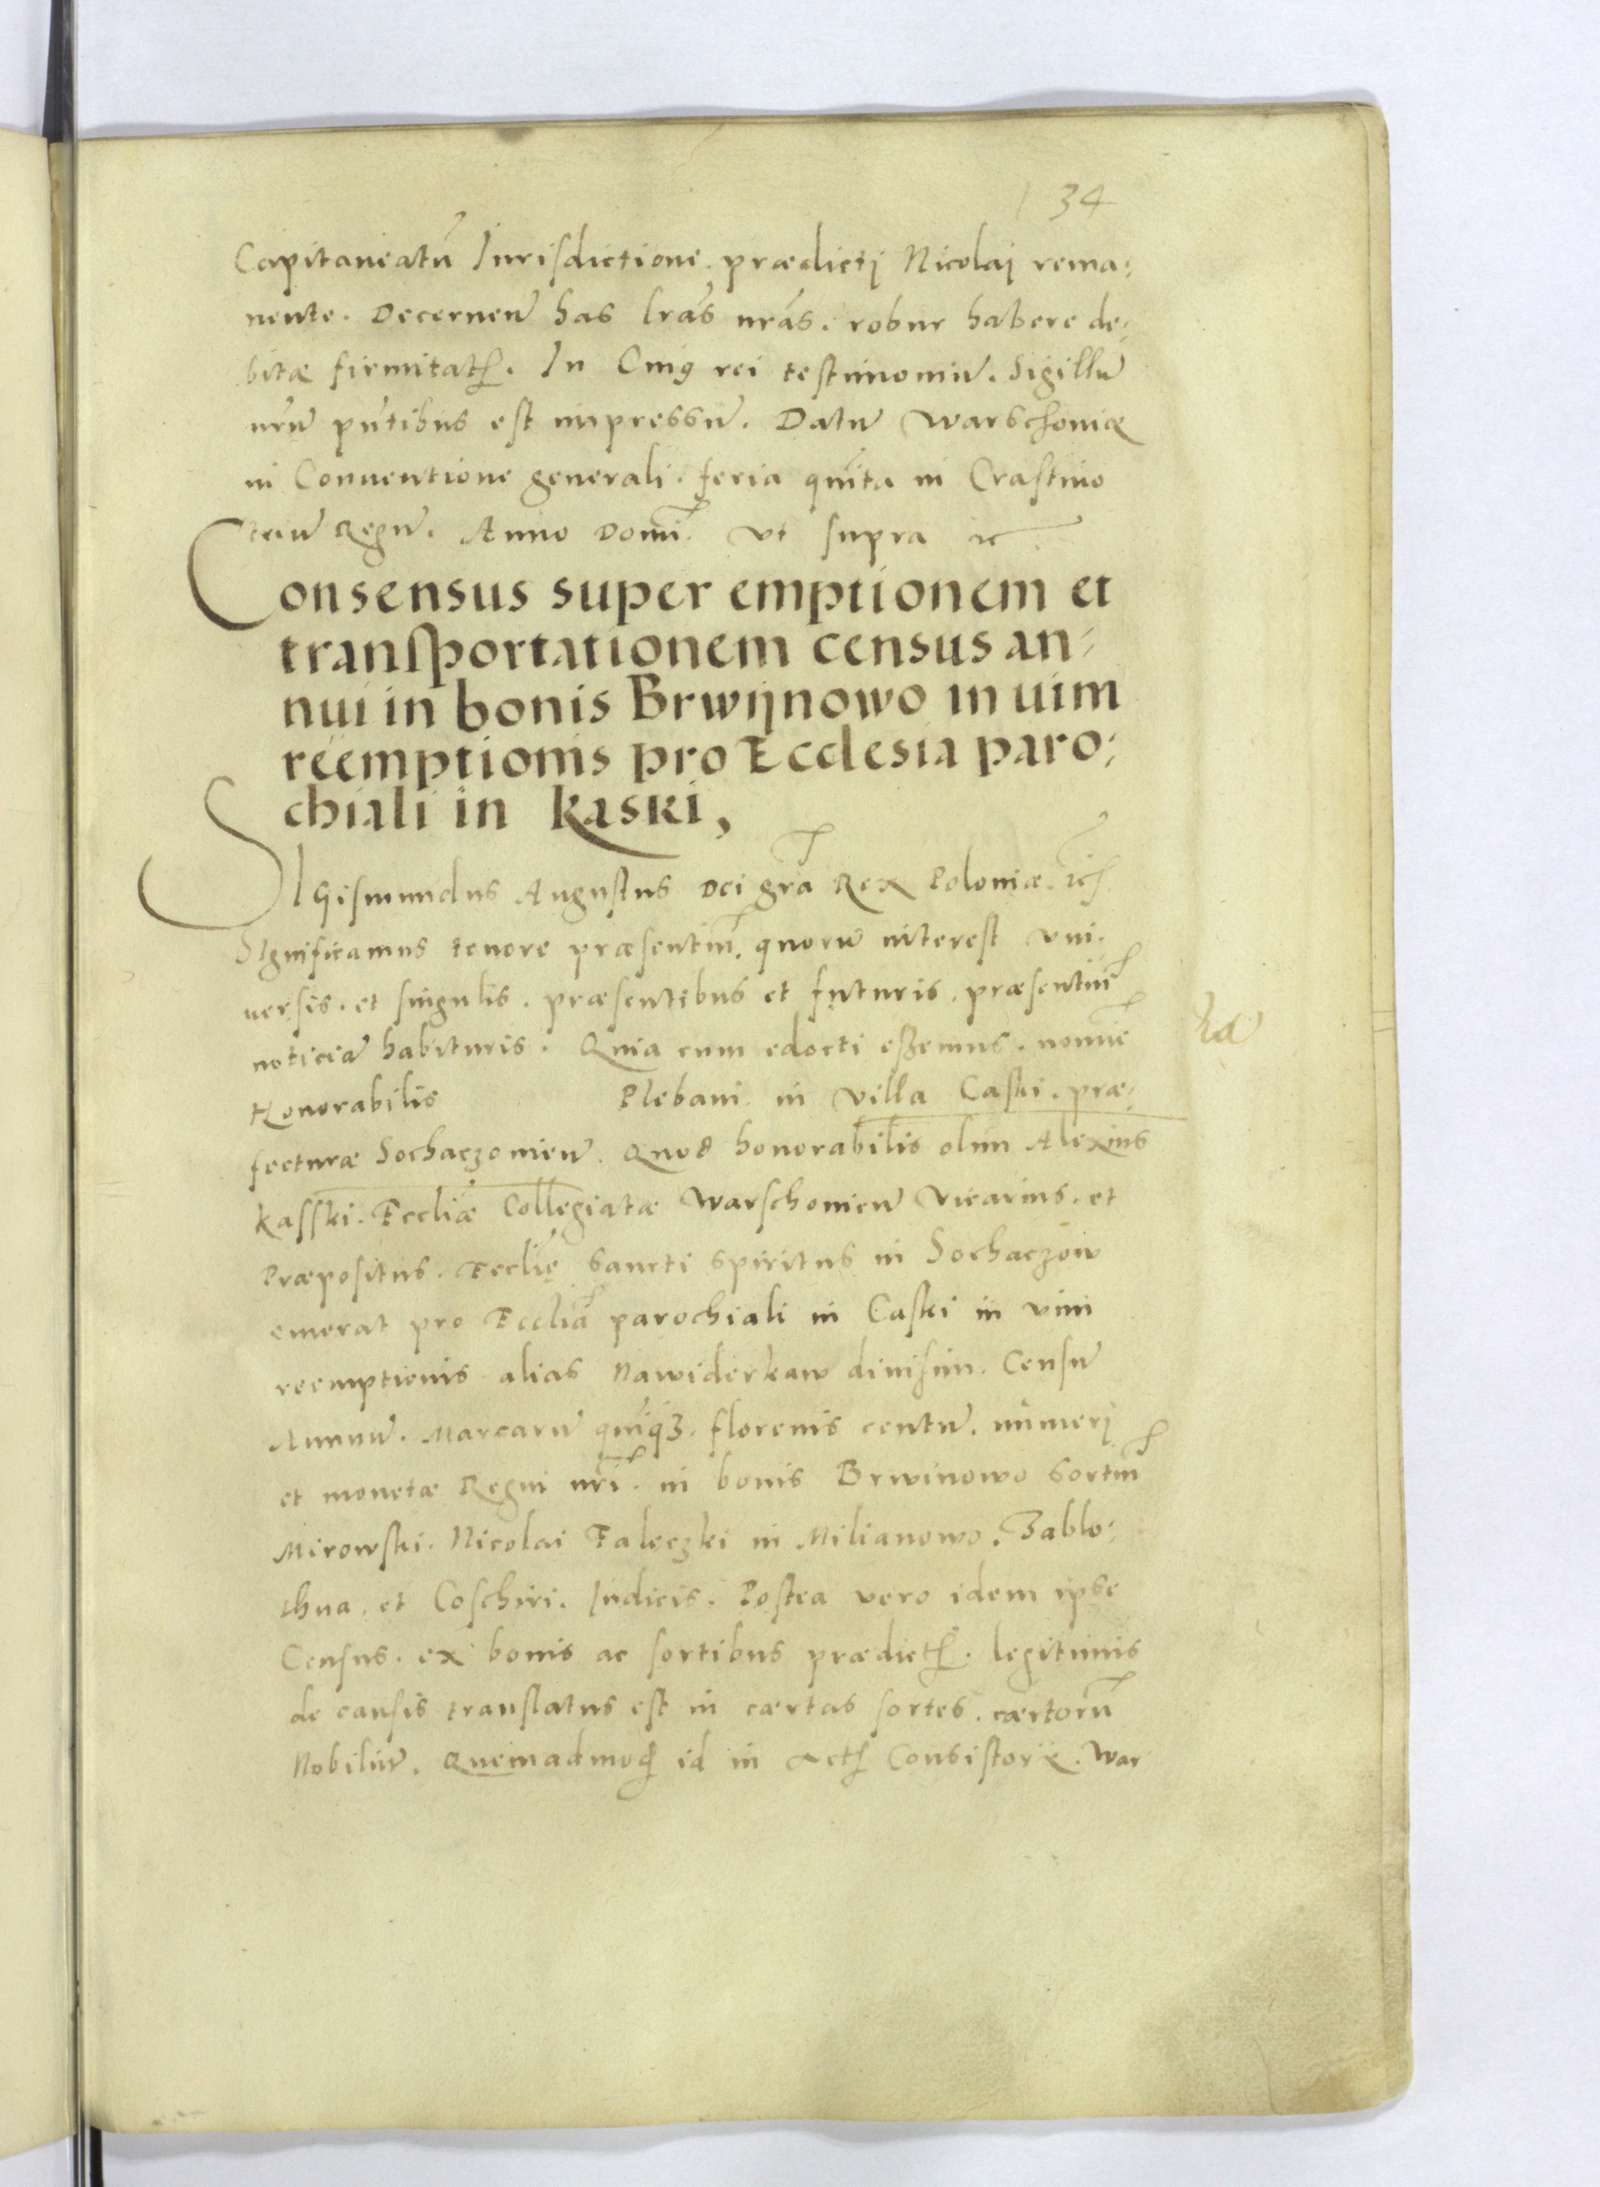 134
Capitaneatu Jurisdictione. prædictj Nicolaj rema:
nente. Decernen has lras nras. robur habere de:
bitæ firmitatis. In Cuius rei testimoniu. Sigillu
nru pntibus est impressu. Datu Warschoniæ
in Conuentione generali. feria quita in Crastino
triu Regu. Anno Domi. Vt supra ꝛc.
Consensus super emptionem et
transportationem census an-
nui in bonis Brwijnowo in uim
reemptionis pro Ecclesia paro:
chiali in Kaski,
SIgismundus Augustus Dei gra Rex Poloniæ. ꝛc
SIgnificamus tenore præsentiu. quoru interest vni:
uersis. et singulis. præsentibus et futuris. præsentiu
noticia habituris. Quia cum edocti eßemus. nomie
Honorabilis Plebani in villa Caski. præ:
fecturæ Sochaczouien. Quod honorabilis olim Alexius
Kasski. Eccliæ Collegiatæ Warschouien Vicarius. et
Præpositus. Ecclię Sancti Spiritus in Sochaczow
emerat pro Ecclia parochiali in Caski in vim
reemptionis alias Nawiderkaw diuisim. Censu
Annuu. Marcaru quiqꝫ. florenis centu. numerj
et monetæ Regni nri. in bonis Brwinowo Sortiu
Mirowski. Nicolai Faleczki in Milianowo. Zablo:
thna. et Coschiri. Iudicis. Postea vero idem ipse
Census. ex bonis ac sortibus prædictis. legitimis
de causis translatus est in cærtas sortes. cærtoru
Nobiliu. Quemadmod id in Actis Consistorij. War